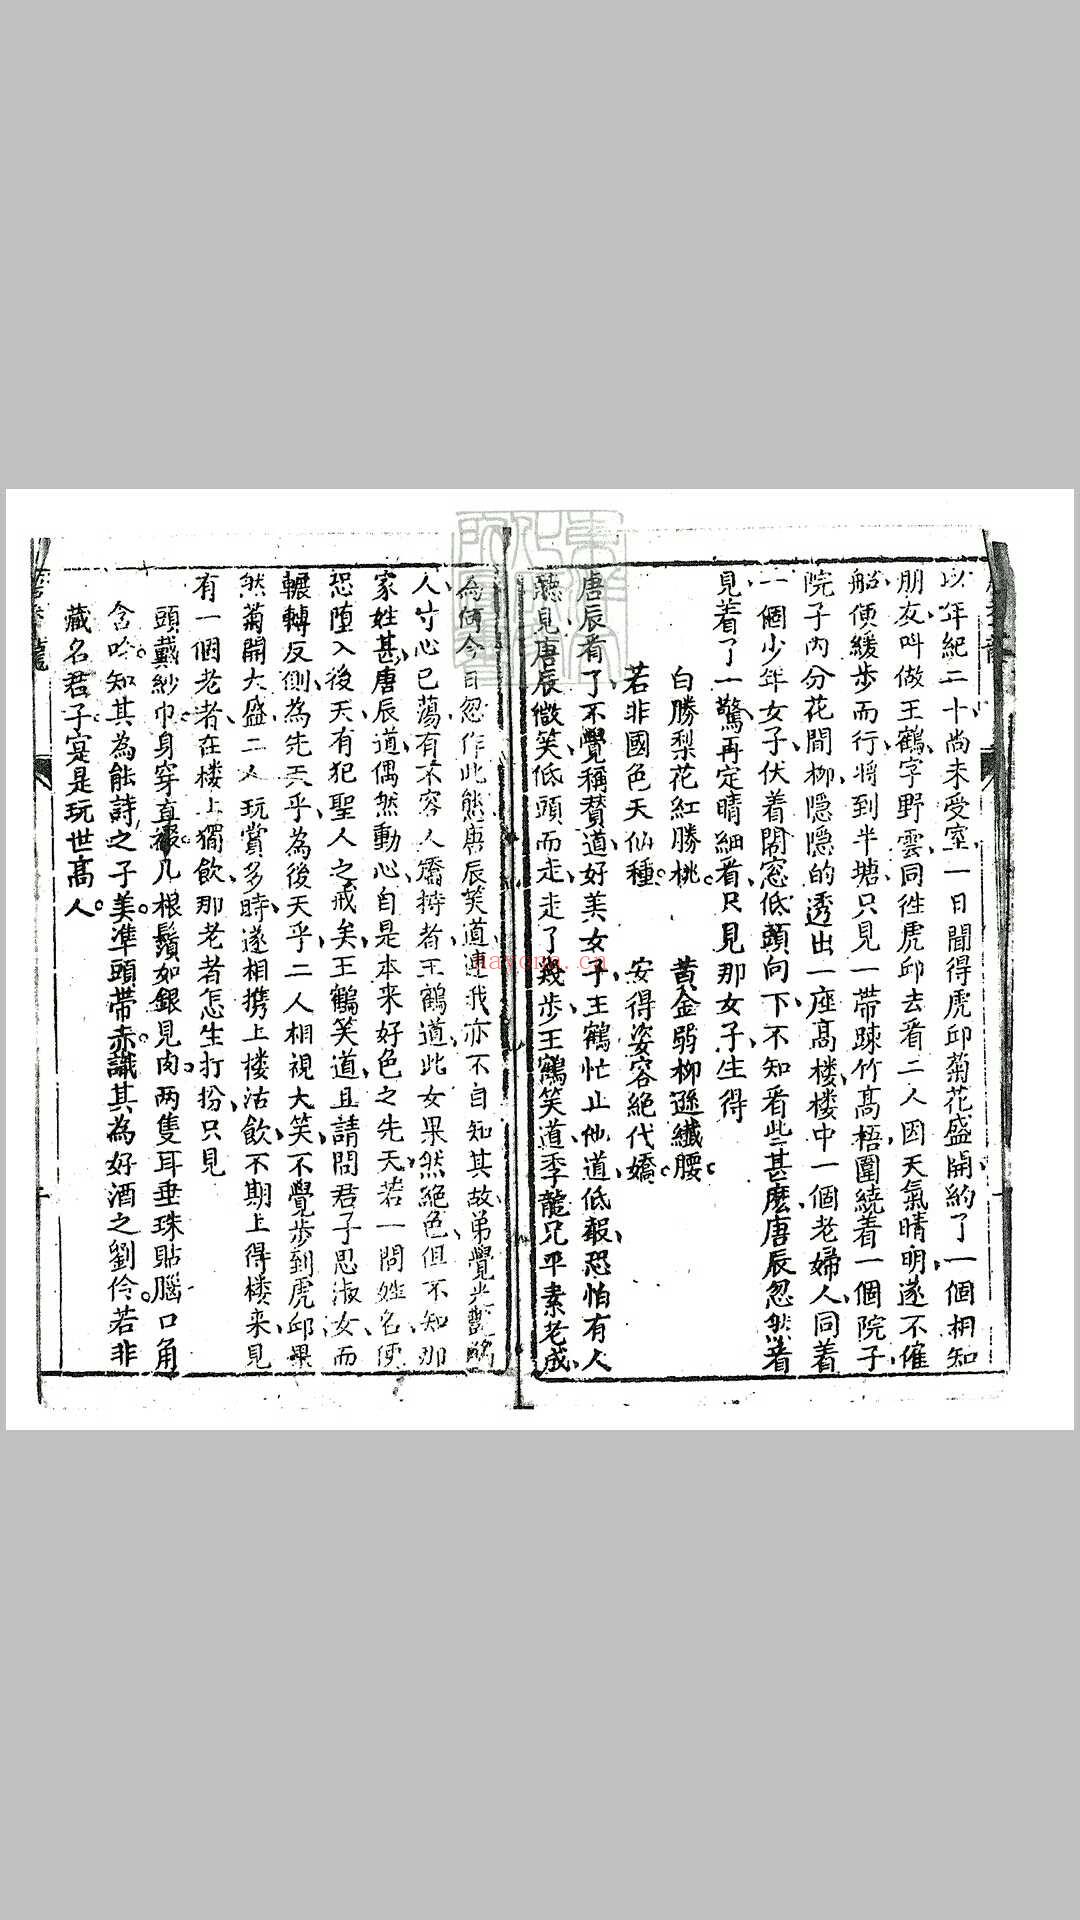 以年紀二十尚未受室一日聞得虎邱菊花盛開約了一個相知
朋友叫做王鶴字野雲同徃虎邱去看二人因天氣晴明遂不催
船便緩步而行將到半塘只見一帶踈竹髙梧圍繞着一個院子
院子內分花間柳隱隱的透出一座髙樓樓中一個老婦人同着
一個少年女子伏着閣窓低頭向下不知看些甚麽唐辰忽然看
見着了一驚再定睛細看只見那女子生得
白勝梨花紅勝桃 黄金弱柳遜纖腰
若非國色天仙種 安得姿容絕代嬌
唐辰看了不覺稱賛道好美女子王鶴忙止他道低報恐怕有人
聽見唐辰微笑低頭而走走了幾步王鶴笑道季龍兄平素老成
為何今日忽作此態唐辰笑道連我亦不自知其故弟覺
人寸心已蕩有不容人矯持者王鶴道此女果然絕色但不知那
家姓甚唐辰道偶然動心自是本来好色之先天若一問姓名便
恐堕入後天有犯聖人之戒矣王鶴笑道且請問君子思淑女而
輾轉反側為先天乎為後天乎二人相視大笑不覺步到虎邱果
然菊開大盛二人玩賞多時遂相携上楼沽飲不期上得楼来見
有一個老者在楼上獨飲那老者怎生打扮只見
頭戴紗巾身穿直裰几根鬚如銀見肉两隻耳垂珠貼腦口角
含吟知其為能詩之子美準頭帶赤識其為好酒之劉伶若非
藏名君子寔是玩世髙人
nayona.cn